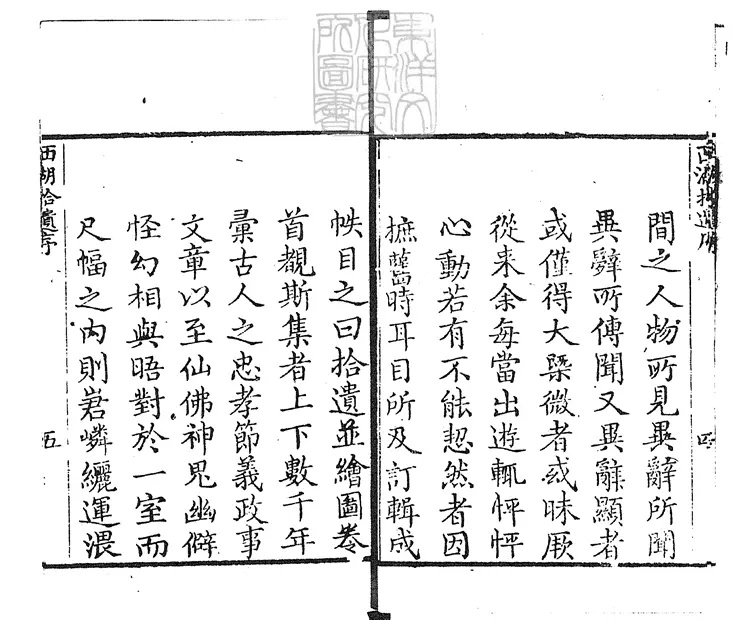 西湖拾遺序
間之人物所見異辭所聞
異辭所傳聞又異辭顯者
或僅得大槩微者或昧厥
從来余每當出遊輒怦怦
心動若有不能恝然者因
摭舊時耳目所及訂輯成
四
帙目之曰拾遺並繪圖卷
首覩斯集者上下數千年
彙古人之忠孝節義政事
文章以至仙佛神鬼幽僻
怪幻相與晤對於一室而
尺幅之內則嶜嶙纚運渨
西湖拾遺序
五
東洋文化研究所圖書